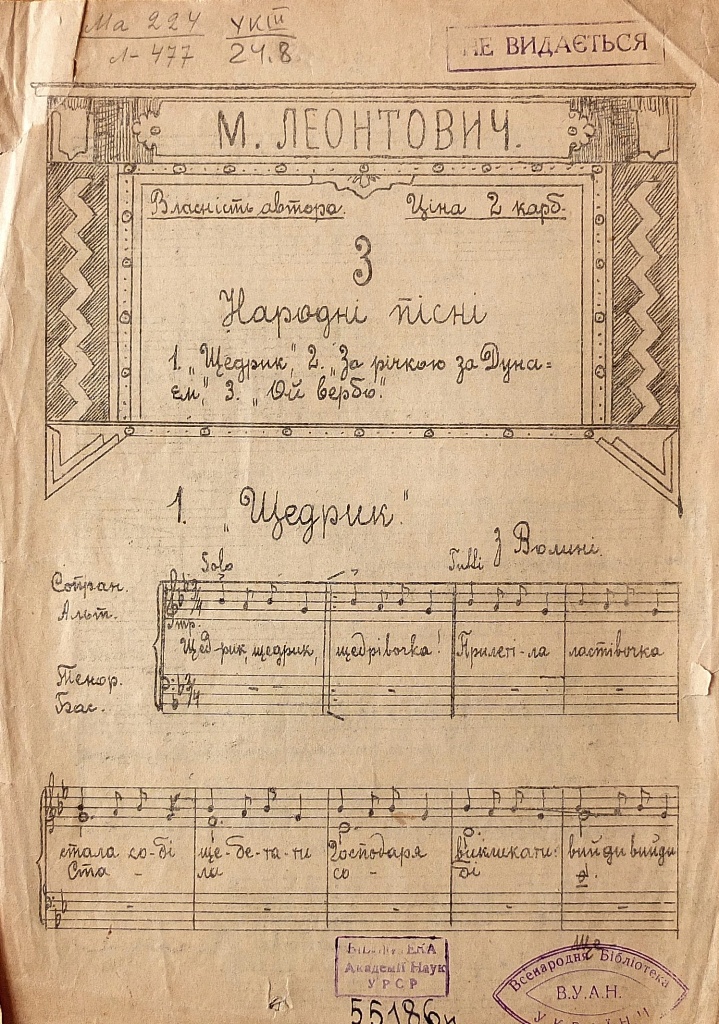 Ма 224 УКП
Л-477 24.8
НЕ ВИДАЄТЬСЯ
М. ЛЕОНТОВИЧ.
Власність автора. Ціна 2 карб.
3
Народні пісні
1. „Щедрик", 2. „За річкою за Дуна=
єм", 3. „Ой вербо".
1. „Щедрик."
З Волині.
Solo Tutti
Сопран.
Альт.
2/4
mp.
Щед-рик, щедрик, щедрівочка! Прилеті-ла ластівочка
Тенор.
Бас.
2/4
стала со-бі ще-бе-та-ти Господаря викликати: вийди вийди
Ста - ла со - бі
Ще
БІБЛІОТЕКА
Академії Наук
УРСР
55186
Всенародня Бібліотека
В.У.А.Н.